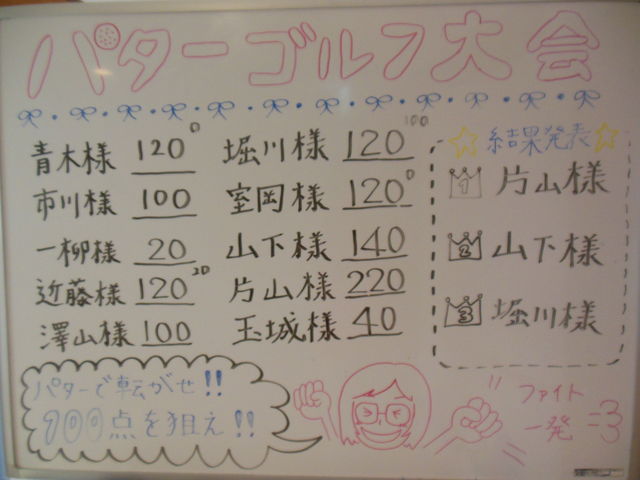 パターゴルフ大会
青木様 120 0
市川様 100
一柳様 20
近藤様 120 20
澤山様 100
堀川様 120 100
室岡様 120 0
山下様 140
片山様 220
玉城様 40
結果発表
1 片山様
2 山下様
3 堀川様
パターで転がせ!!
900点を狙え!!
ファイト
一発